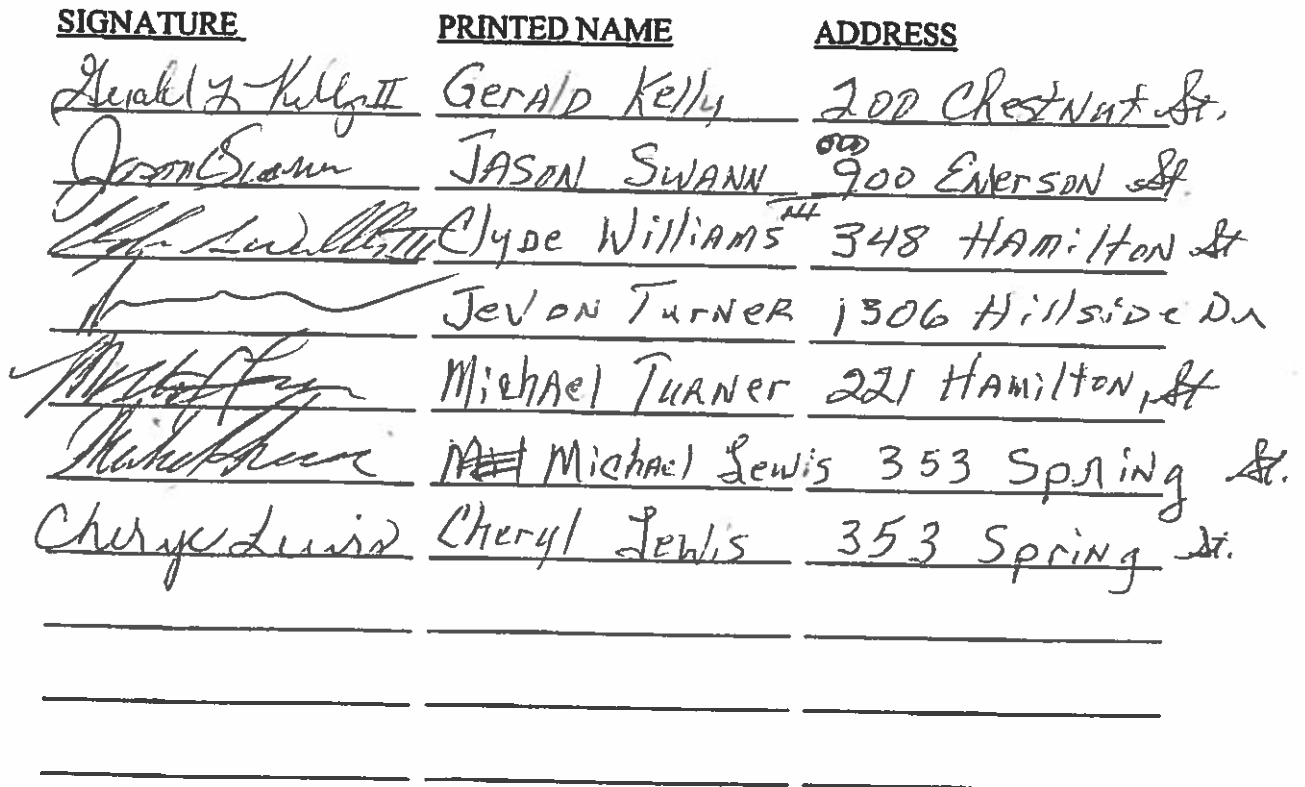 SIGNATURE PRINTED NAME ADDRESS
Gerald L Kelly II Gerald Kelly 200 Chestnut St.
Jason Swann JASON SWANN 900 Emerson St
III Clyde Williams III 348 Hamilton St
Jevon Turner 1306 Hillside Dr
Michael Turner 221 Hamilton, St
Michael Lewis 353 Spring St.
Cheryl Lewis Cheryl Lewis 353 Spring St.